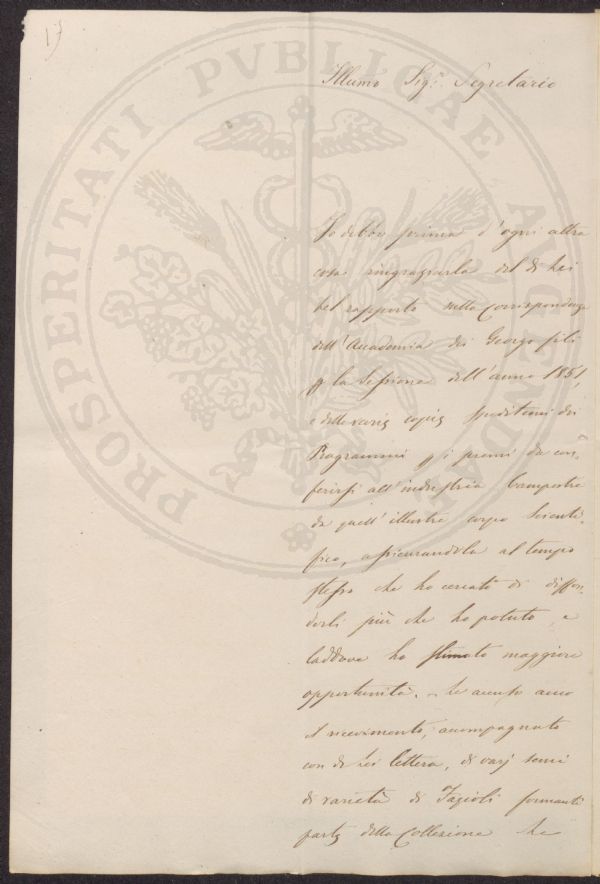 17
PROSPERITATI PVBLICAE AVGENDAE
Illumo Sigr Segretario
Io debbo prima d'ogni altra
cosa ringraziarla del di Lei
bel rapporto sulla Corrispondenza
dell'Accademia dei Georgofili
p la Sessione dell'anno 1851,
e delle varie copie speditemi dei
Programmi p i premi da con,
ferirsi all'industria Campestre
da quell'illustre corpo Scienti,
fico, assicurandola al tempo
stesso che ho cercato di diffon,
derli più che ho potuto, e
laddove ho stimato maggiore
opportunità. - Le accuso anco
il ricevimento, accompagnato
con di Lei lettera, di varj semi
di varietà di Fagioli formanti
parte della Collezione che